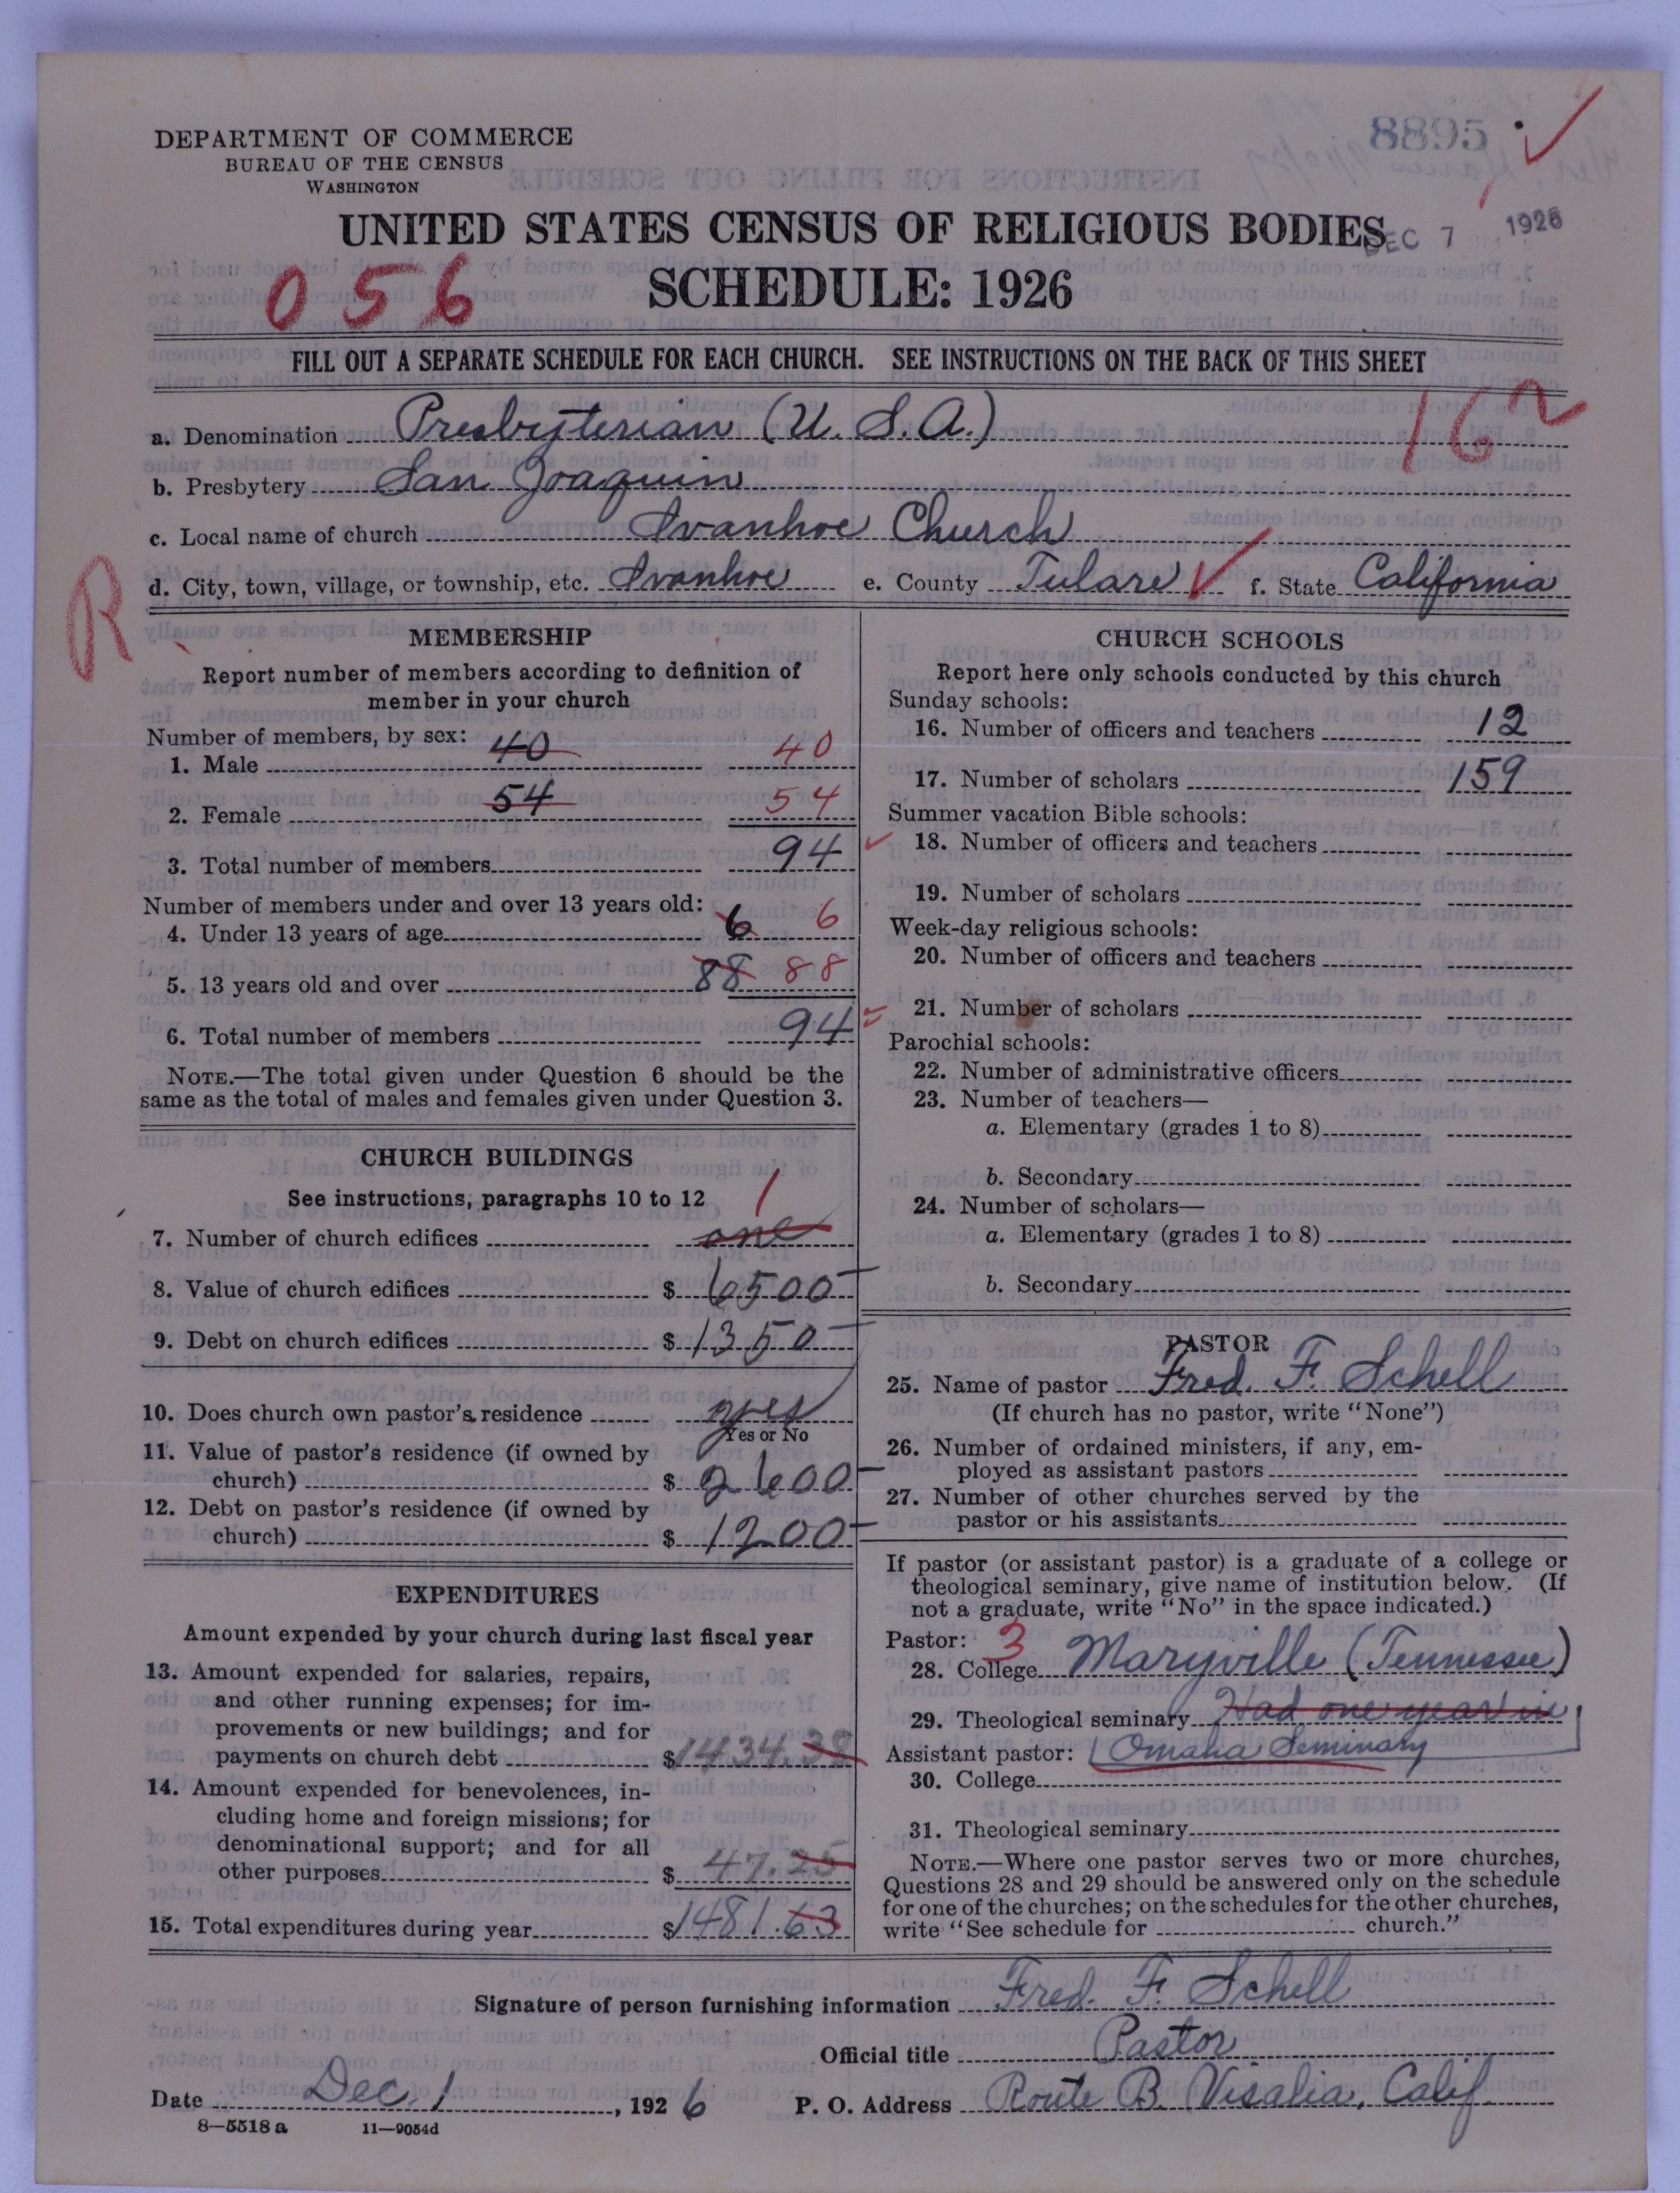 8895
DEPARTMENT OF COMMERCE
BUREAU OF THE CENSUS
WASHINGTON
UNITED STATES CENSUS OF RELIGIOUS BODIES
DEC 7 1926
056
SCHEDULE: 1926
FILL OUT A SEPARATE SCHEDULE FOR EACH CHURCH. SEE INSTRUCTIONS ON THE BACK OF THIS SHEET
a. Denomination Presbyterian (U. S. A.)
162
b. Presbytery San Joaquin
c. Local name of church Ivanhoe Church
d. City, town, village, or township, etc. Ivanhoe e. County Tulare f. State California
R
MEMBERSHIP
Report number of members according to definition of
member in your church
Number of members, by sex:
1. Male 40 40
2. Female 54 54
3. Total number of members 94
Number of members under and over 13 years old:
4. Under 13 years of age 6 6
5. 13 years old and over 88 88
6. Total number of members 94
NOTE.—The total given under Question 6 should be the
same as the total of males and females given under Question 3.
CHURCH BUILDINGS
See instructions, paragraphs 10 to 12
7. Number of church edifices one 1
8. Value of church edifices $ 6500
9. Debt on church edifices $ 1350
10. Does church own pastor's residence yes
Yes or No
11. Value of pastor's residence (if owned by
church) $ 2600
12. Debt on pastor's residence (if owned by
church) $ 1200
EXPENDITURES
Amount expended by your church during last fiscal year
13. Amount expended for salaries, repairs,
and other running expenses; for im-
provements or new buildings; and for
payments on church debt $ 1434.38
14. Amount expended for benevolences, in-
cluding home and foreign missions; for
denominational support; and for all
other purposes $ 47.25
15. Total expenditures during year $ 1481.63
CHURCH SCHOOLS
Report here only schools conducted by this church
Sunday schools:
16. Number of officers and teachers 12
17. Number of scholars 159
Summer vacation Bible schools:
18. Number of officers and teachers
19. Number of scholars
Week-day religious schools:
20. Number of officers and teachers
21. Number of scholars
Parochial schools:
22. Number of administrative officers
23. Number of teachers—
a. Elementary (grades 1 to 8)
b. Secondary
24. Number of scholars—
a. Elementary (grades 1 to 8)
b. Secondary
PASTOR
25. Name of pastor Fred. F. Schell
(If church has no pastor, write "None")
26. Number of ordained ministers, if any, em-
ployed as assistant pastors
27. Number of other churches served by the
pastor or his assistants
If pastor (or assistant pastor) is a graduate of a college or
theological seminary, give name of institution below. (If
not a graduate, write "No" in the space indicated.)
Pastor: 3
28. College Maryville (Tennessee)
29. Theological seminary Had one year in
Assistant pastor: Omaha Seminary
30. College
31. Theological seminary
NOTE.—Where one pastor serves two or more churches,
Questions 28 and 29 should be answered only on the schedule
for one of the churches; on the schedules for the other churches,
write "See schedule for church."
Signature of person furnishing information Fred. F. Schell
Official title Pastor
Date Dec. 1, 1926 P. O. Address Route B. Visalia, Calif.
8—5518 a 11—9054d